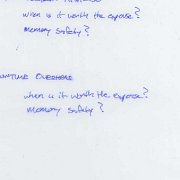 when is it worth the expense?
memory safety?
RUNTIME OVERHEAD
when is it worth the expense?
memory safety?